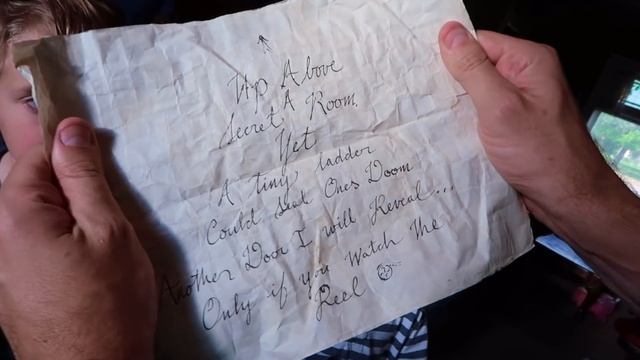 Up Above
Secret A Room
Yet
A tiny ladder
Could Seal Ones Doom
Another Door I will Reveal...
Only if you Watch the
Reel